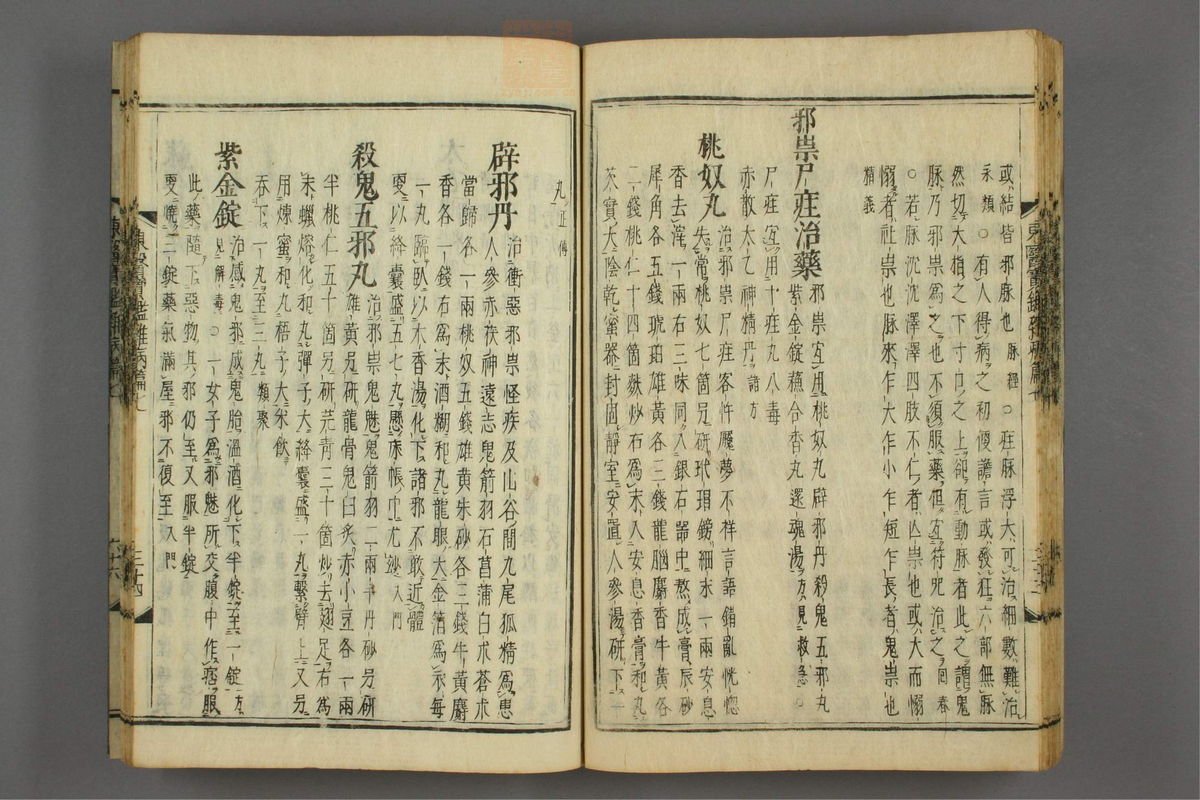 或結皆邪脉也脉經○疰脉浮大可治細數難治
永類○有人得病之初便譫言或發狂六部無脉
然切大指之下寸口之上却有動脉者此之謂鬼
脉乃邪祟爲之也不須服藥但宜符呪治之回春
○若脉沈沈澤澤四肢不仁者亾祟也或大而愵
愵者社祟也脉來乍大乍小乍短乍長者鬼祟也
精義
邪祟尸疰治藥邪祟宜用桃奴丸辟邪丹殺鬼五邪丸
紫金錠蘓合香丸還魂湯方見救急○
尸疰宜用十疰丸八毒
赤散太乙神精丹諸方
桃奴丸治邪祟尸疰客忤魘夢不祥言語錯亂恍惚
失常桃奴七箇另研玳瑁鎊細末一兩安息
香去滓一兩右三味同入銀石器中熬成膏辰砂
犀角各五錢琥珀雄黃各三錢龍腦麝香牛黃各
二錢桃仁十四箇麩炒右爲末入安息香膏和丸
芡實大陰乾蜜器封固靜室安置人參湯研下一
丸正傳
辟邪丹治衝惡邪祟怪疾及山谷間九尾狐精爲患
人參赤茯神遠志鬼箭羽石菖蒲白朮蒼朮
當歸各一兩桃奴五錢雄黃朱砂各三錢牛黃麝
香各一錢右爲末酒糊和丸龍眼大金箔爲衣每
一丸臨臥以木香湯化下諸邪不敢近體
更以絳囊盛五七丸懸床帳中尤妙入門
殺鬼五邪丸治邪祟鬼魅鬼箭羽二兩半丹砂另研
雄黃另研龍骨鬼臼炙赤小豆各一兩
半桃仁五十箇另研芫靑三十箇炒去翅足右爲
末蠟熔化和丸彈子大絳囊盛一丸繫臂上又另
用煉蜜和丸梧子大米飮
吞下一丸至三丸類聚
紫金錠治感鬼邪或鬼胎溫酒化下半錠至一錠方
見解毒○一女子爲邪魅所交腹中作痞服
此藥隨下惡物其邪仍至又服半錠
更燒二三錠藥氣滿屋邪不復至入門